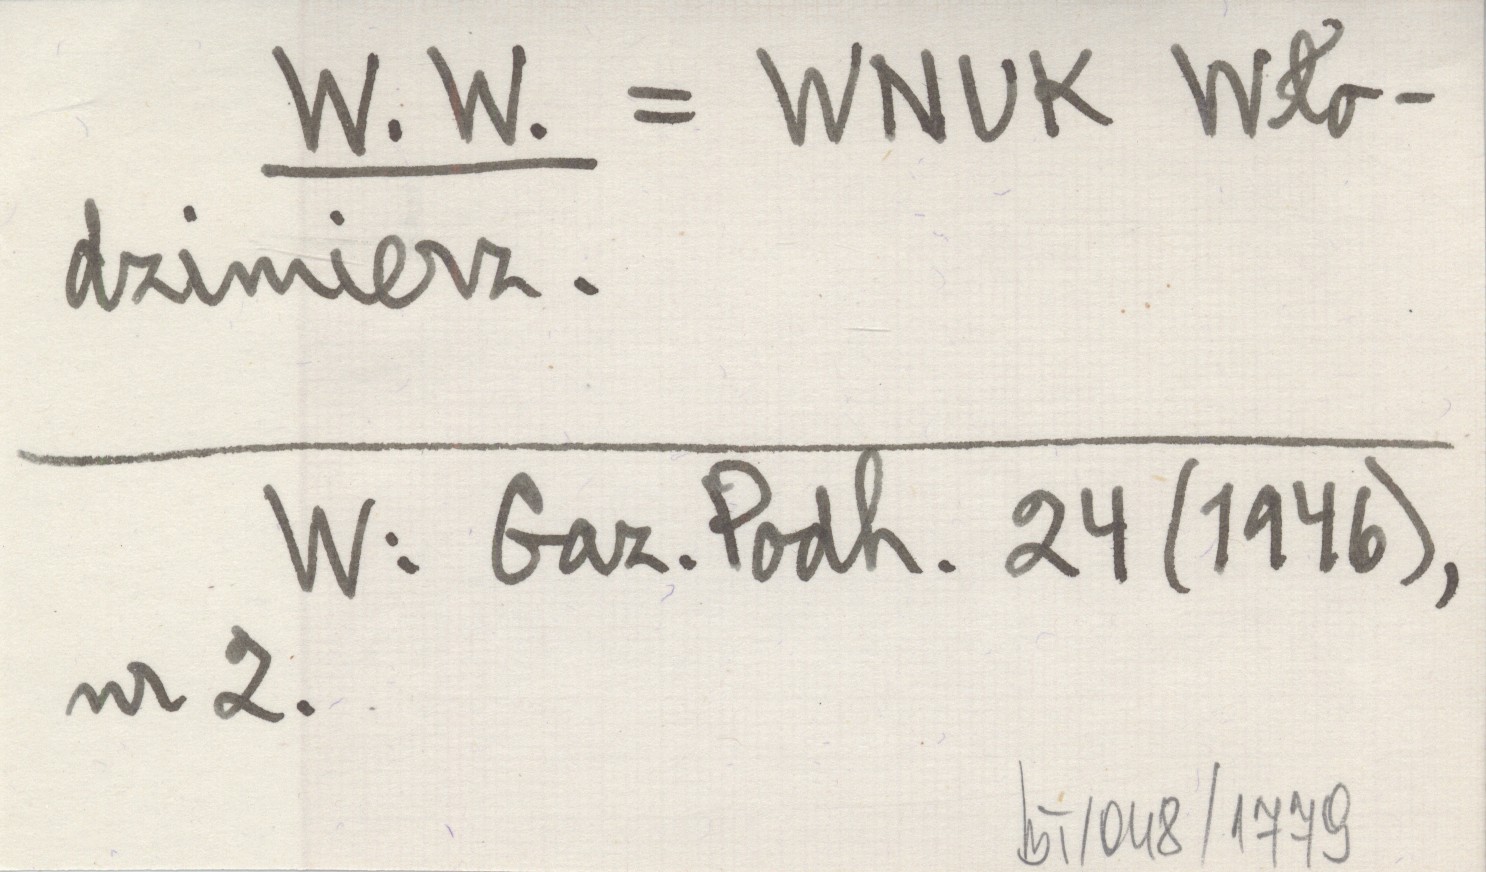 W. W. = WNUK Wło-
dzimierz.
W: Gaz. Podh. 24 (1946),
nr 2.
/048/1779